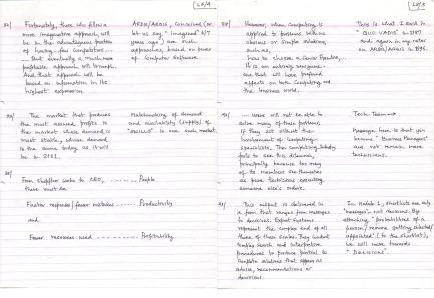 LS/4
32/
Fortunately, those who follow a
more imaginative approach, will
be in the advantageous position
of having few Competitors ...
... But eventually a much more
profitable approach will triumph.
And that approach will be
based on information in its
highest expression.
ARDIN/ARDIS, Conceived (or
let us say "imagined" 4/7
years ago) are such
approaches, based on power
of Computer Software.
The market that produces
the most assured profits is
the market whose demand is
most stable, whose demand
is the same today as it will
be in 2101.
Matchmaking of demand
and availability (supply) of
"skills" is one such market.
From Shipping Clerk to CEO, ------ People
there must be
Faster response/fewer mistakes ------ Productivity
and
Fewer resources used ------ Profitability
LS/5
However, when Computing is
applied to problems with no
obvious or simple solutions,
such as,
how to choose a Career Executive,
it is an entirely new game -
one that will have profound
effects on both Computing and
the business world.
This is what I said in
"QUO VADIS" in 1987
and again in my notes
on ARDIN/ARDIS in 1996.
.... users will not be able to
solve many of these problems,
if they act without the
involvement of Computing
Specialists. The Computing Industry
fails to see this dilemma,
principally because too many
of its members see themselves
as pure technicians executing
someone else's orders.
Tech. Team
Message here is that you
become "Business Managers"
and not remain mere
technicians.
41/
This output is delivered in
a form that ranges from messages
to decisions. Expert Systems
represent the complex end of all
three of these scales. They conduct
complex search and interpretive
procedures to produce partial to
complete solutions that appear as
advice, recommendations or
decisions.
In Module 1, shortlists are only
"messages", not decisions. By
attaching "probabilities of a
person/resume getting selected/
appointed" (to the shortlist),
we will move towards
"Decisions".